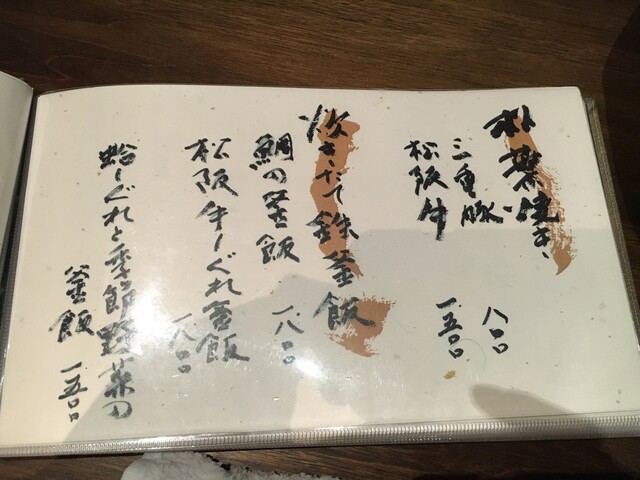 朴葉焼き、
三重豚 八〇〇
松阪牛 一、五〇〇
炊きたて鉄釜飯
鯛の釜飯 一、八〇〇
松阪牛しぐれ釜飯 一、八〇〇
蛤しぐれと季節野菜の
釜飯 一、五〇〇